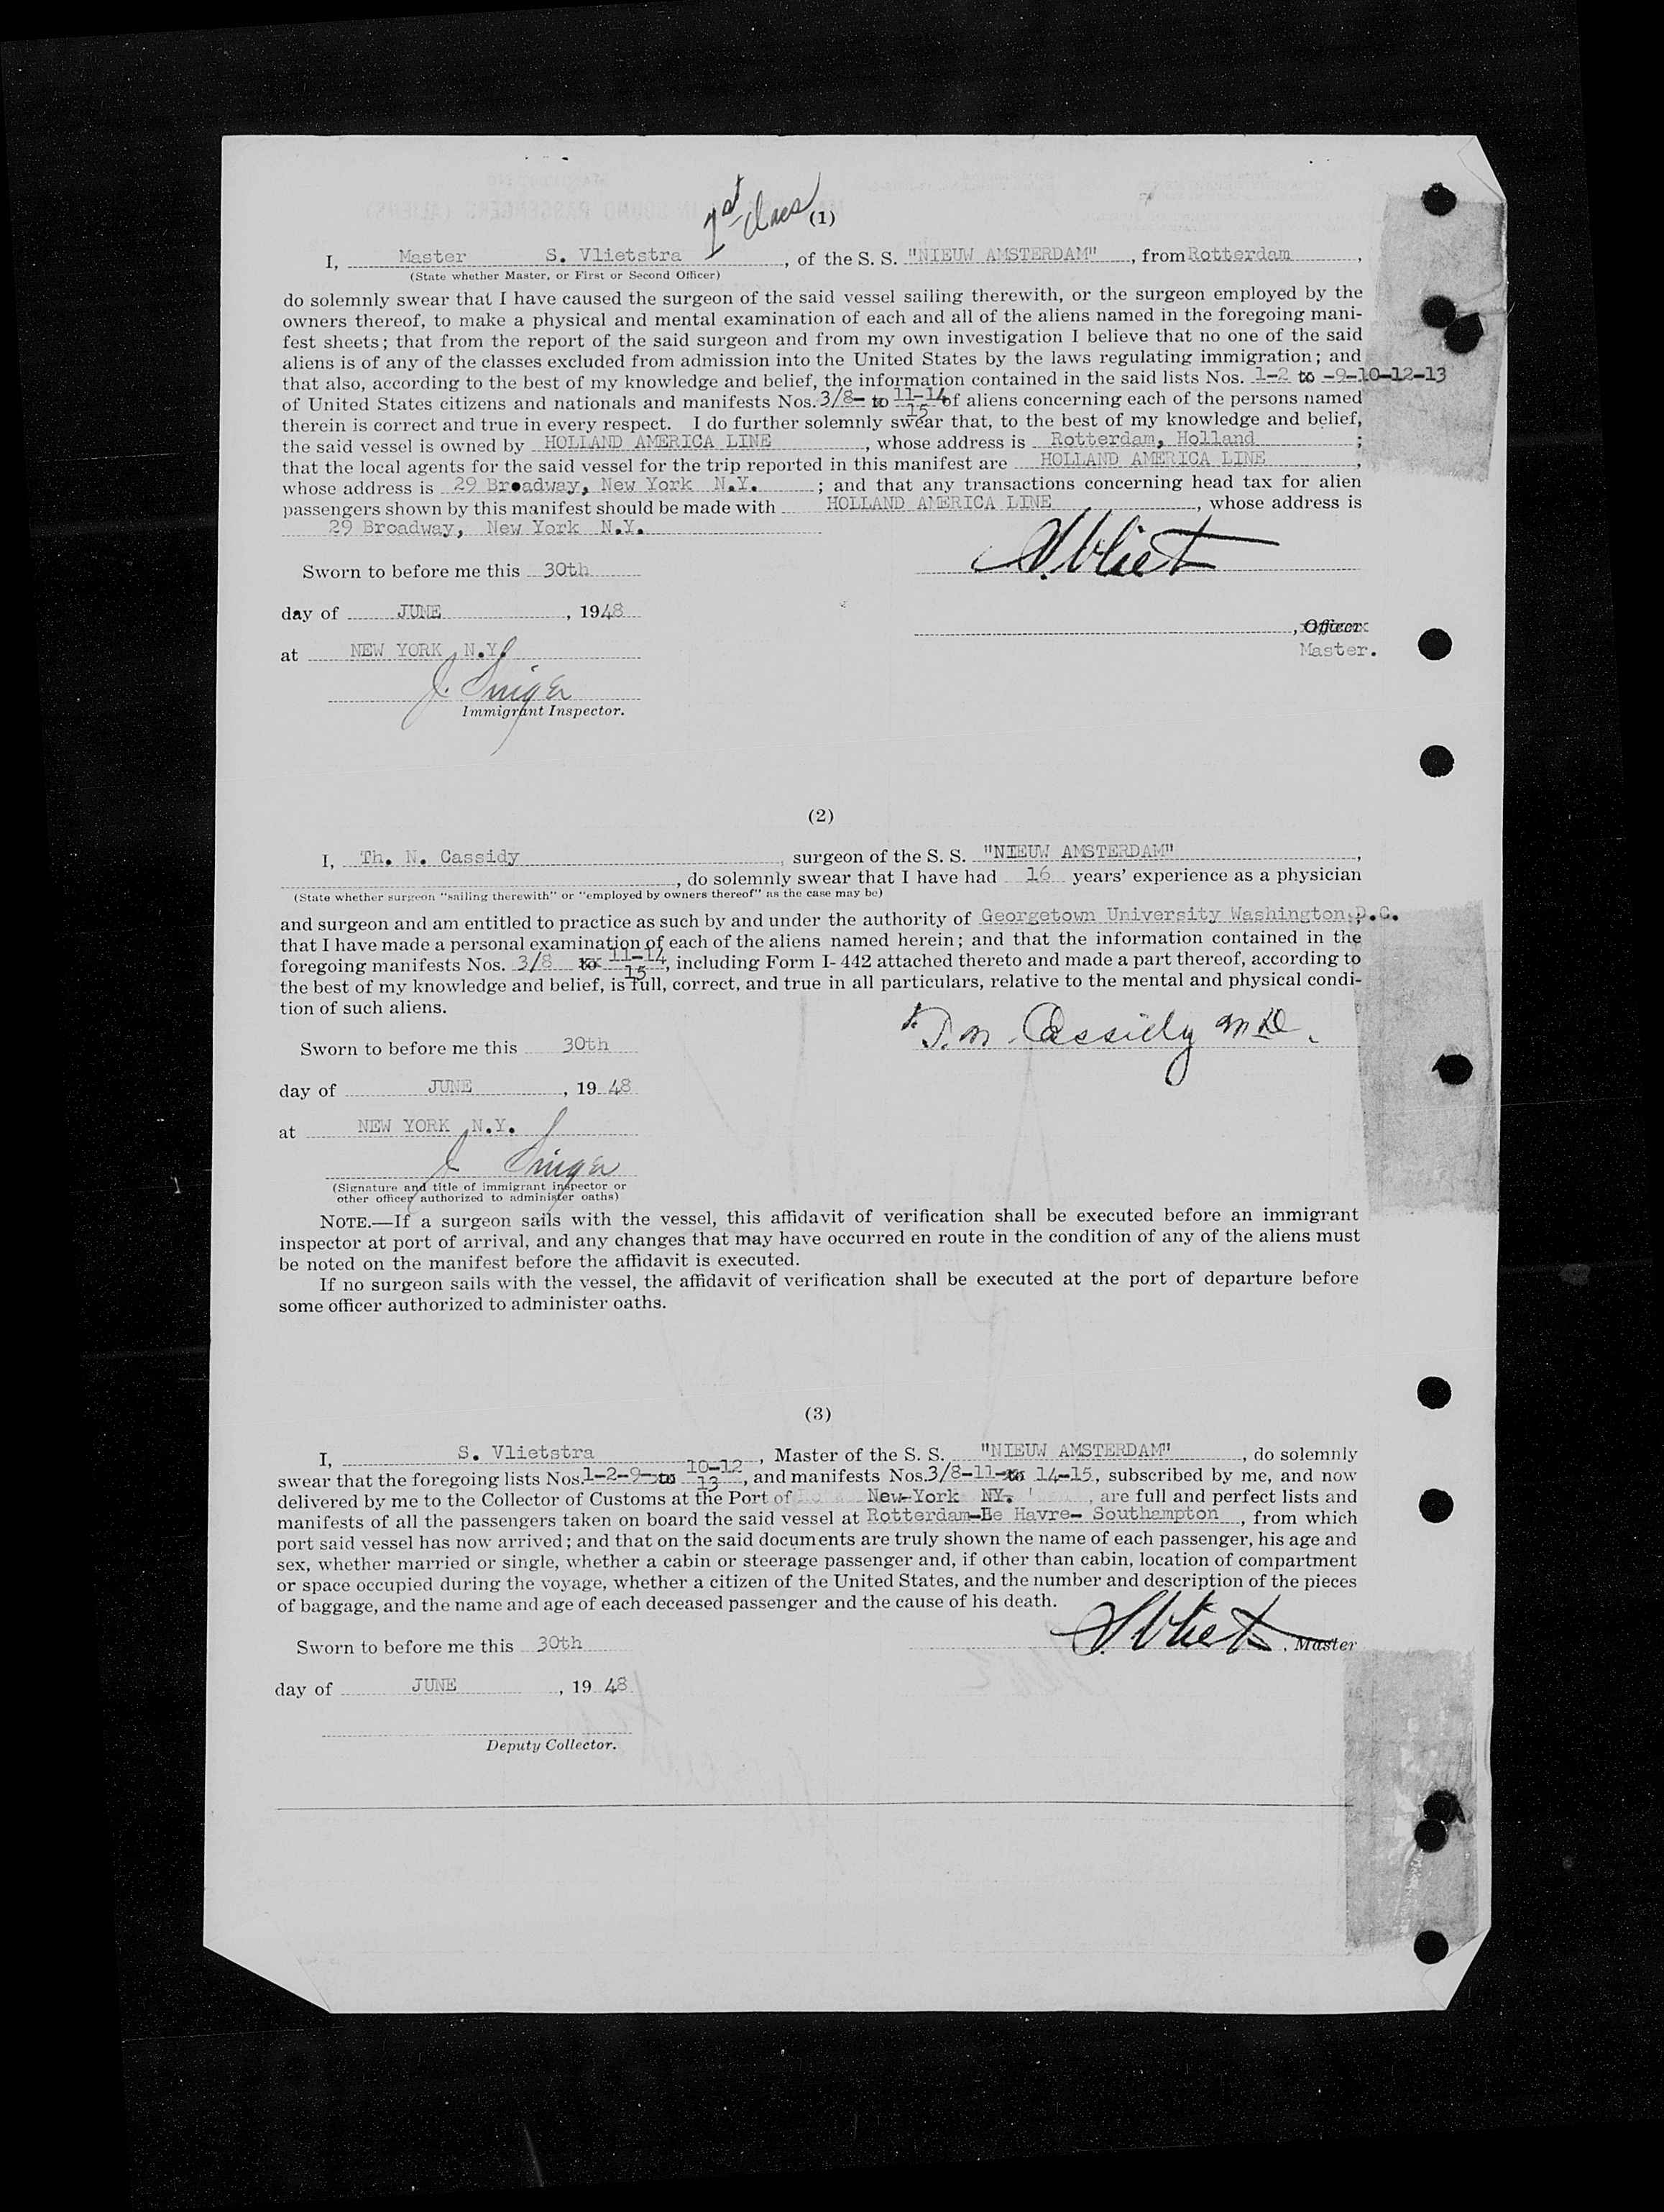 1st class
(1)
I, Master S. Vlietstra, of the S. S. "NIEUW AMSTERDAM", from Rotterdam,
(State whether Master, or First or Second Officer)
do solemnly swear that I have caused the surgeon of the said vessel sailing therewith, or the surgeon employed by the
owners thereof, to make a physical and mental examination of each and all of the aliens named in the foregoing mani-
fest sheets; that from the report of the said surgeon and from my own investigation I believe that no one of the said
aliens is of any of the classes excluded from admission into the United States by the laws regulating immigration; and
that also, according to the best of my knowledge and belief, the information contained in the said lists Nos. 1-2 to -9-10-12-13
of United States citizens and nationals and manifests Nos. 3/8- to 11-14 of aliens concerning each of the persons named
15
therein is correct and true in every respect. I do further solemnly swear that, to the best of my knowledge and belief,
the said vessel is owned by HOLLAND AMERICA LINE, whose address is Rotterdam, Holland;
that the local agents for the said vessel for the trip reported in this manifest are HOLLAND AMERICA LINE,
whose address is 29 Broadway, New York N.Y.; and that any transactions concerning head tax for alien
passengers shown by this manifest should be made with HOLLAND AMERICA LINE, whose address is
29 Broadway, New York N.Y.
S. Vliet
Sworn to before me this 30th
day of JUNE, 1948
, Officer
at NEW YORK N.Y.
Master.
J. Singer
Immigrant Inspector.
(2)
I, Th. N. Cassidy, surgeon of the S. S. "NIEUW AMSTERDAM",
, do solemnly swear that I have had 16 years' experience as a physician
(State whether surgeon "sailing therewith" or "employed by owners thereof" as the case may be)
and surgeon and am entitled to practice as such by and under the authority of Georgetown University Washington, D.C.
that I have made a personal examination of each of the aliens named herein; and that the information contained in the
foregoing manifests Nos. 3/8 to 11-14, including Form I-442 attached thereto and made a part thereof, according to
15
the best of my knowledge and belief, is full, correct, and true in all particulars, relative to the mental and physical condi-
tion of such aliens.
T. N. Cassidy MD.
Sworn to before me this 30th
day of JUNE, 19 48
at NEW YORK N.Y.
J Singer
(Signature and title of immigrant inspector or
other officer authorized to administer oaths)
NOTE.—If a surgeon sails with the vessel, this affidavit of verification shall be executed before an immigrant
inspector at port of arrival, and any changes that may have occurred en route in the condition of any of the aliens must
be noted on the manifest before the affidavit is executed.
If no surgeon sails with the vessel, the affidavit of verification shall be executed at the port of departure before
some officer authorized to administer oaths.
(3)
I, S. Vlietstra, Master of the S. S. "NIEUW AMSTERDAM", do solemnly
swear that the foregoing lists Nos. 1-2-9- to 10-12, and manifests Nos. 3/8-11- to 14-15, subscribed by me, and now
13
delivered by me to the Collector of Customs at the Port of New-York NY., are full and perfect lists and
manifests of all the passengers taken on board the said vessel at Rotterdam-Le Havre- Southampton, from which
port said vessel has now arrived; and that on the said documents are truly shown the name of each passenger, his age and
sex, whether married or single, whether a cabin or steerage passenger and, if other than cabin, location of compartment
or space occupied during the voyage, whether a citizen of the United States, and the number and description of the pieces
of baggage, and the name and age of each deceased passenger and the cause of his death.
S. Vliet, Master
Sworn to before me this 30th
day of JUNE, 19 48
Deputy Collector.